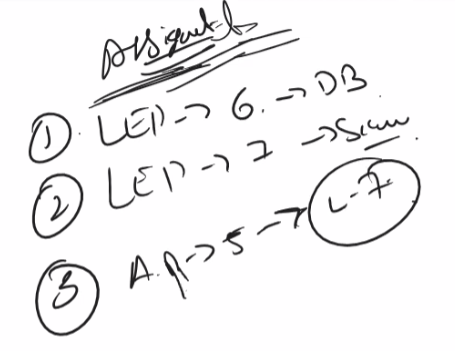 Assignment
① LED → 6. → DB
② LED → 7 → Scan
③ A.P → 5 → L-7